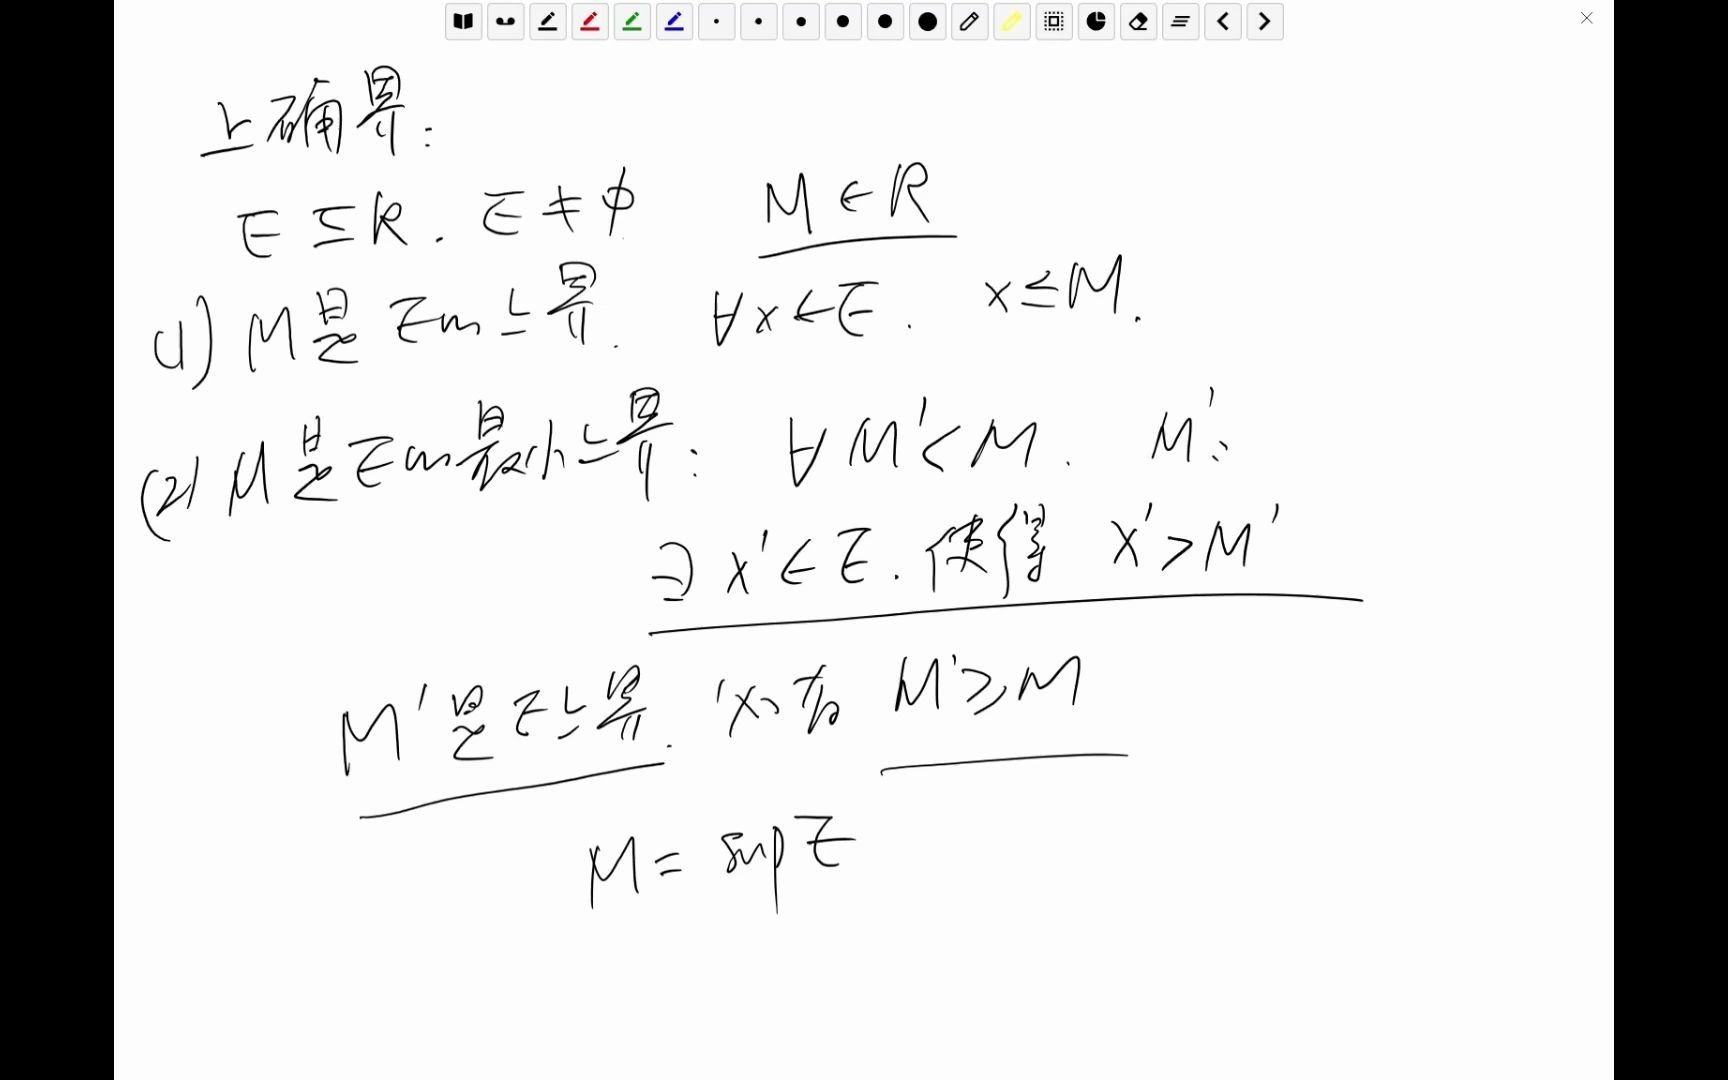 上确界:
E ⊆ R. E ≠ ∅ M ∈ R
(1) M是E的上界. ∀x∈E. x≤M.
(2) M是E的最小上界: ∀M'<M. M':
∃x'∈E. 使得 x'>M'
M'是E上界. 必有 M'≥M
M = sup E